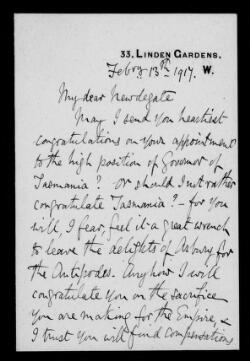 33. LINDEN GARDENS.
W.
Febry 13th 1917.
My dear Newdegate
May I send you heartiest
congratulations on your appointment
to the high position of Governor of
Tasmania? Or should I not rather
congratulate Tasmania? - for you
will, I fear, feel it a great wrench
to leave the delights of Arbury for
the Antipodes. Anyhow I will
congratulate you on the sacrifice
you are making for the Empire, &
I trust you will find compensations